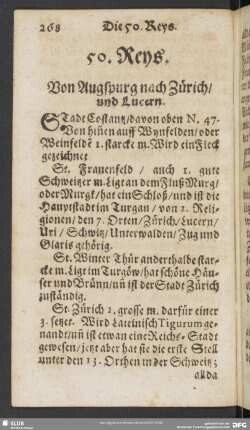 268 Die 50. Reys.
50. Reys.
Von Augspurg nach Zürich/
und Lucern.
STade Costantz/davon oben N. 47.
Von hiñen auff Wynfelden/oder
Weinfeldē 2. starcke m. Wird ein Fleck
gezeichnet
St. Frauenfeld / auch 2. gute
Schweitzer m. Ligt an dem Fluß Murg/
oder Murgk/hat ein Schloß/und ist die
Hauptstadt im Turgau / von 2. Reli-
gionen/ den 7. Orten/Zürich/Lucern/
Uri / Schwitz/ Unterwalden/ Zug und
Glaris gehörig.
St. Winter Thür anderthalbe star-
cke m. Ligt im Turgöw/hat schöne Häu-
ser und Brünn/uñ ist der Stadt Zürich
zuständig.
St. Zürich 2. grosse m. darfür einer
3. setzet. Wird Lateinisch Tigurum ge-
nandt/uñ ist etwan eine Reichs-Stadt
gewesen/jetzt aber hat sie die erste Stell
unter den 13. Orthen in der Schweitz;
allda